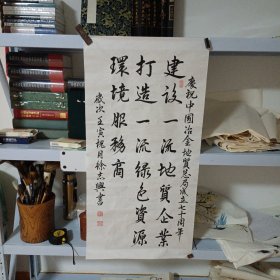 慶祝中國冶金地質總局成立七十周年
建設一流地質企業
打造一流綠色資源
環境服務商
歲次壬寅槐月徐志興書